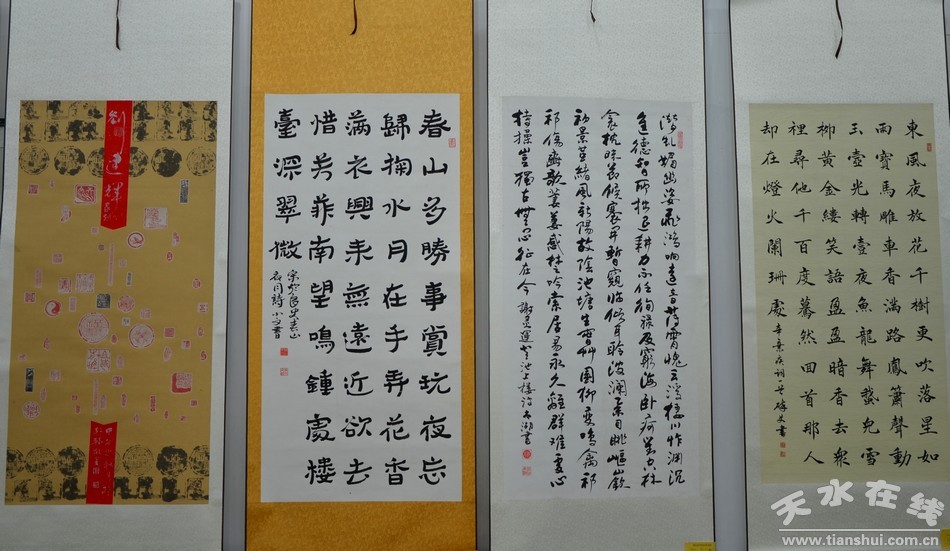 劉建輝
春山多勝事賞玩夜忘
歸掬水月在手弄花香
滿衣興來無遠近欲去
惜芳菲南望鳴鐘處樓
臺深翠微
潛虬媚幽姿飛鴻响遠音薄霄愧雲浮棲川怍淵沉
進德智所拙退耕力不任徇祿及窮海卧痾對空林
衾枕昧節候褰開暫窺臨傾耳聆波瀾舉目眺嶇嶔
初景革緒風新陽故陰池塘生春草園柳變鳴禽祁
祁傷豳歌萋萋感楚吟索居易永久離群難處心
持操豈獨古無悶征在今 謝靈運登池上樓詩
東風夜放花千樹更吹落星如
雨寶馬雕車香滿路鳳簫聲動
玉壺光轉壹夜魚龍舞蛾兒雪
柳黃金縷笑語盈盈暗香去眾
裡尋他千百度驀然回首那人
却在燈火闌珊處 辛棄疾詞
天水在线
www.tianshui.com.cn